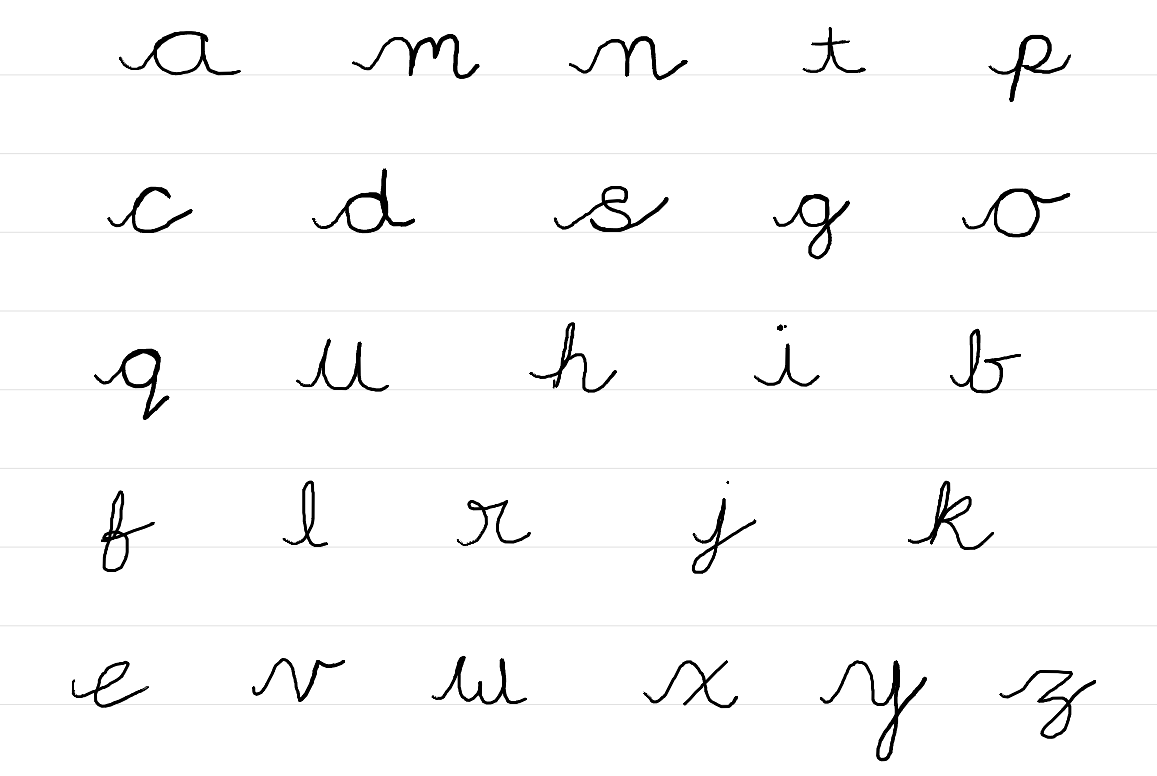 a m n t p
c d s g o
q u h i b
f l r j k
e v w x y z